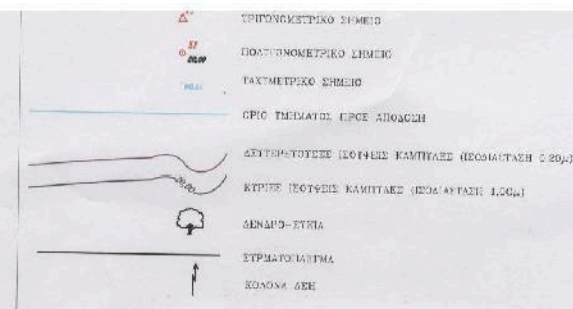 ΤΡΙΓΩΝΟΜΕΤΡΙΚΟ ΣΗΜΕΙΟ
ΠΟΛΥΓΩΝΟΜΕΤΡΙΚΟ ΣΗΜΕΙΟ
ΤΑΧΥΜΕΤΡΙΚΟ ΣΗΜΕΙΟ
ΟΡΙΟ ΤΜΗΜΑΤΟΣ ΠΡΟΣ ΑΠΟΔΟΣΗ
ΔΕΥΤΕΡΕΥΟΥΣΕΣ ΙΣΟΥΨΕΙΣ ΚΑΜΠΥΛΕΣ (ΙΣΟΔΙΑΣΤΑΣΗ 0.20μ)
ΚΥΡΙΕΣ ΙΣΟΥΨΕΙΣ ΚΑΜΠΥΛΕΣ (ΙΣΟΔΙΑΣΤΑΣΗ 1,00μ)
ΔΕΝΔΡΟ-ΣΥΚΙΑ
ΣΥΡΜΑΤΟΠΛΕΓΜΑ
ΚΟΛΟΝΑ ΔΕΗ